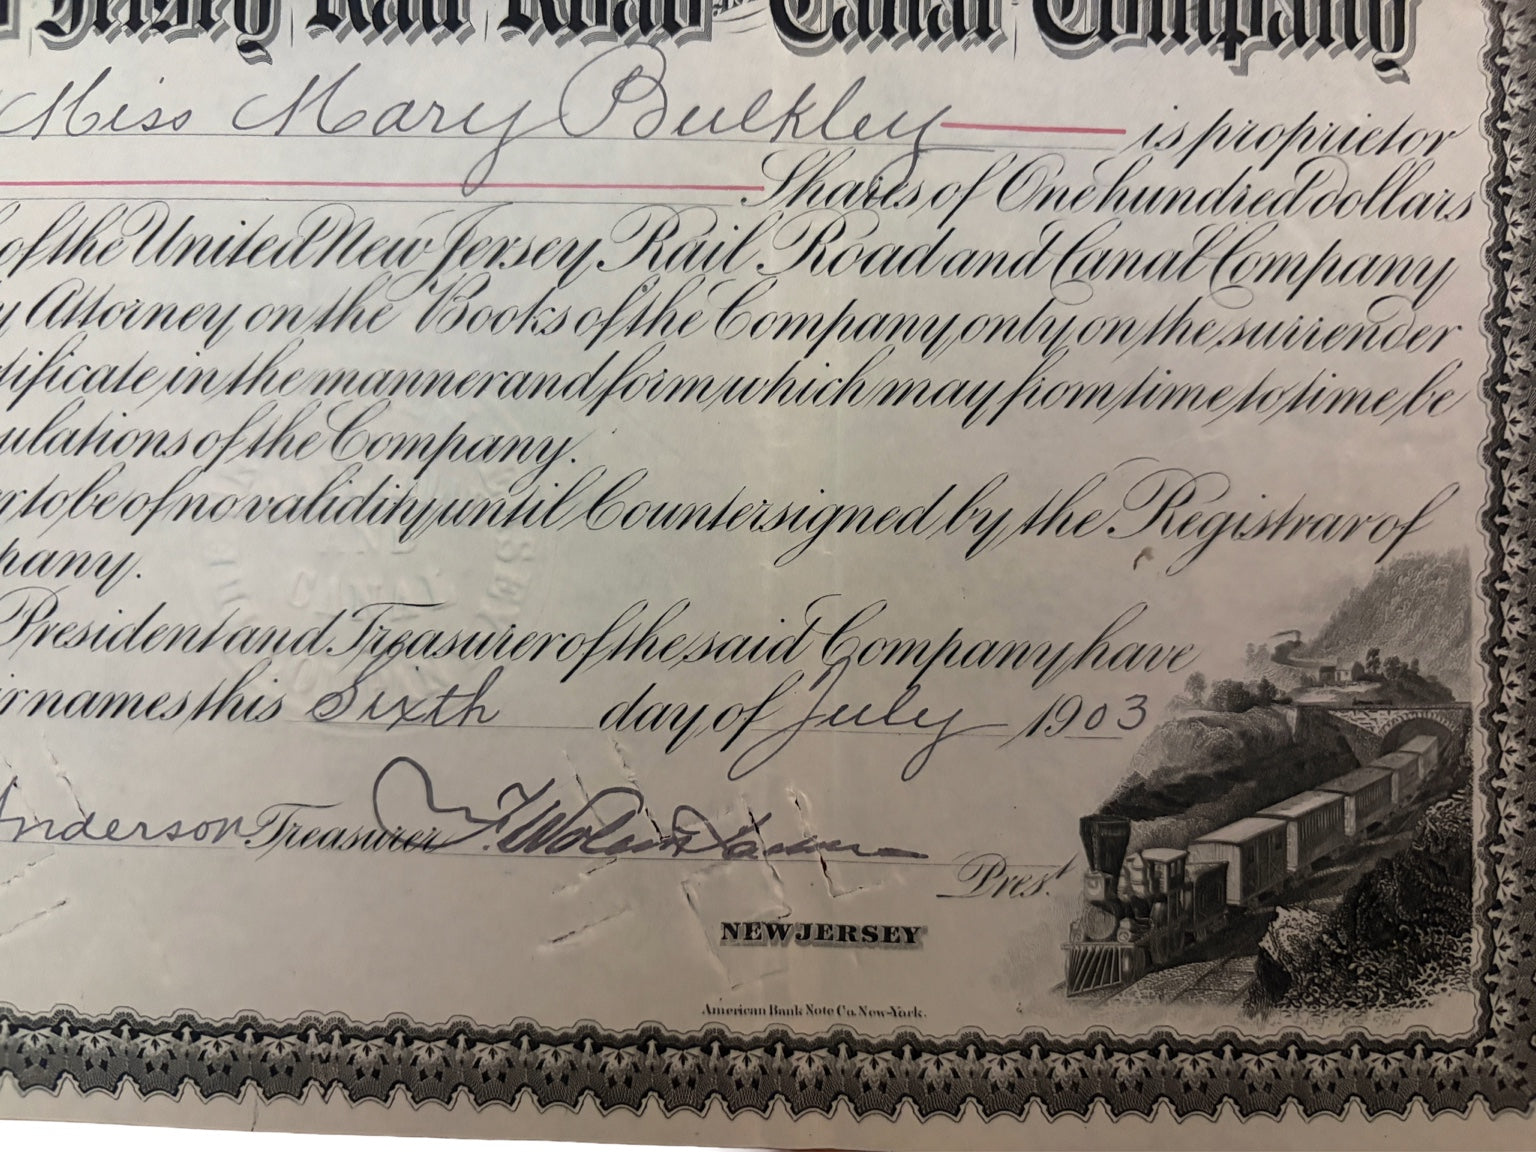 Jersey Rail Road and Canal Company
Miss Mary Bulkley is proprietor
Shares of One hundred dollars
of the United New Jersey Rail Road and Canal Company
y Attorney on the Books of the Company only on the surrender
tificate in the manner and form which may from time to time be
ulations of the Company.
er to be of no validity until Countersigned by the Registrar of
pany.
President and Treasurer of the said Company have
ir names this Sixth day of July 1903
Anderson Treasurer Prest.
NEW JERSEY
American Bank Note Co. New-York.